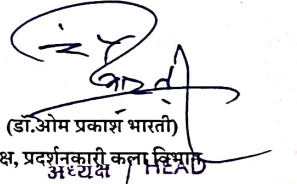 (डॉ.ओम प्रकाश भारती)
क्ष, प्रदर्शनकारी कला विभाग
अध्यक्ष / HEAD